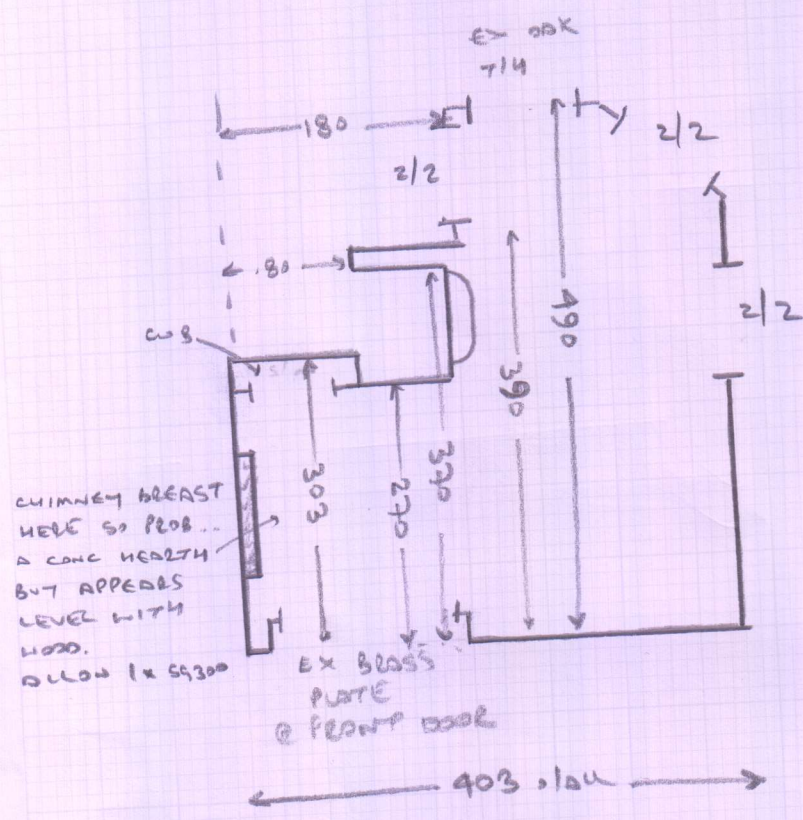 EX OAK
T/H
180
2/2
2/2
80
2/2
CUB
490
390
303
270
370
CHIMNEY BREAST
HERE SO PROB...
A CONC HEARTH
BUT APPEARS
LEVEL WITH
WOOD.
ALLOW 1x SG300
EX BRASS
PLATE
@ FRONT DOOR
403 o/all